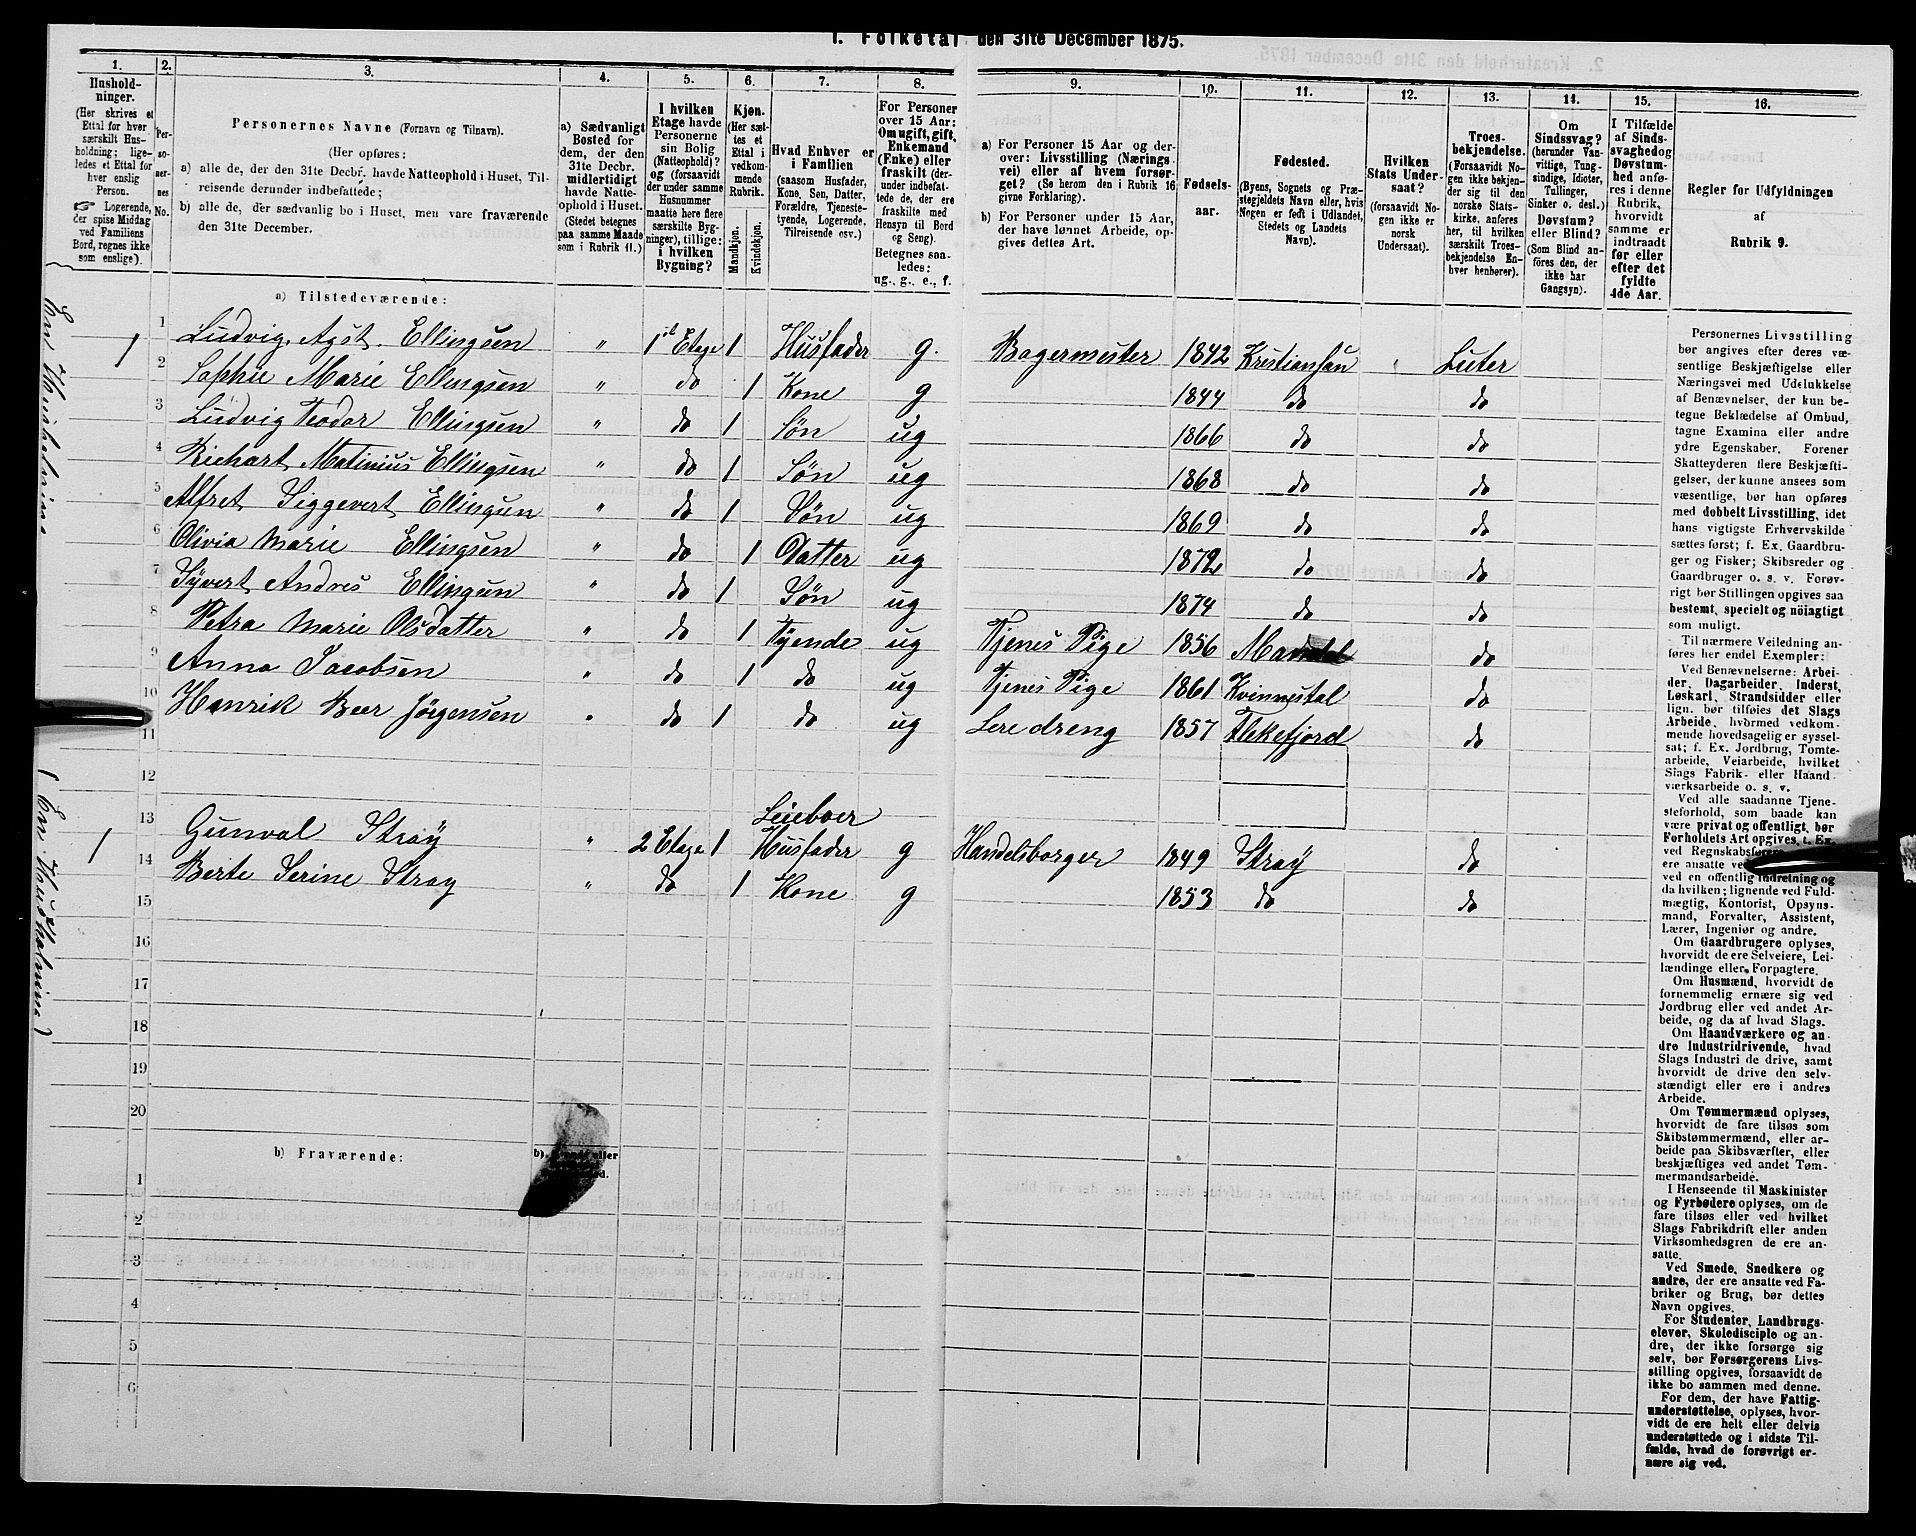 1. Folketal den 31te December 1875.
1. 2. 3. 4. 5. 6. 7. 8. 9. 10. 11. 12. 13. 14. 15. 16.
Husholdninger.
(Her skrives et
Ettal for hver
særskilt Husholdning; ligeledes et Ettal for
hver enslig
Person.
☞ Logerende,
der spise Middag
ved Familiens
Bord, regnes ikke
som enslige).
Personernes No.
Personernes Navne (Fornavn og Tilnavn).
(Her opføres:
a) alle de, der den 31te Decbr. havde Natteophold i Huset, Tilreisende derunder indbefattede;
b) alle de, der sædvanlig bo i Huset, men vare fraværende
den 31te December.
a) Sædvanligt
Bosted for
dem, der den
31te Decbr.
midlertidigt
havde Natteophold i Huset.
(Stedet betegnes
paa samme Maade
som i Rubrik 11.)
I hvilken
Etage havde
Personerne
sin Bolig
(Natteophold)?
og (forsaavidt
der under samme
Husnummer
maatte høre flere
særskilte Bygninger), tillige:
i hvilken
Bygning?
Kjøn.
(Her sættes et
Ettal i
vedkommende
Rubrik.
Mandkjøn.
Kvindekjøn.
Hvad Enhver er
i Familien
(saasom Husfader,
Kone, Søn, Datter,
Forældre, Tjenestetyende, Logerende,
Tilreisende osv.)
For Personer
over 15 Aar:
Om ugift, gift,
Enkemand
(Enke) eller
fraskilt (derunder indbefattede de, der ere
fraskilte med
Hensyn til Bord
og Seng).
Betegnes saaledes:
ug., g., e., f.
a) For Personer 15 Aar og derover: Livsstilling (Næringsvei) eller af hvem forsørget? (Se herom den i Rubrik 16
givne Forklaring).
b) For Personer under 15 Aar,
der have lønnet Arbeide, opgives dettes Art.
Fødselsaar.
Fødested.
(Byens, Sognets og Præstegjeldets Navn eller, hvis
Nogen er født i Udlandet,
Stedets og Landets
Navn).
Hvilken
Stats Undersaat?
(forsaavidt Nogen ikke er
norsk
Undersaat).
Troesbekjendelse.
(Forsaavidt Nogen ikke bekjender sig til den
norske Statskirke, anføres
her, til hvilken
særskilt Troesbekjendelse Enhver henhører).
Om
Sindssvag?
(herunder Vanvittige, Tungsindige, Idioter,
Tullinger,
Sinker o. desl.)
Døvstum?
eller Blind?
(Som Blind anføres den, der
ikke har
Gangsyn).
I Tilfælde
af Sindssvaghed og
Døvstumhed anføres i denne
Rubrik,
hvorvidt
samme er
indtraadt
før eller
efter det
fyldte
4de Aar.
Regler for Udfyldningen
af
Rubrik 9.
a) Tilstedeværende:
1 1 Ludvig Agst. Ellingsen " 1st Etage 1 Husfader g. Bagermester 1842 Kristiansan " Luter
2 Sophie Marie Ellingsen " do 1 Kone g 1844 do do
3 Ludvig Teodor Ellingsen " do 1 Søn ug 1866 do do
4 Richart Matinius Ellingsen " do 1 Søn ug 1868 do do
5 Alfret Siggevert Ellingsen " do 1 Søn ug 1869 do do
6 Olivia Marie Ellingsen " do 1 Datter ug 1872 do do
7 Syvert Andres Ellingsen " do 1 Søn ug 1874 do do
8 Petra Marie Olsdatter " do 1 Tyende ug Tjenes Pige 1856 Mandal do
9 Anna Jacobsen " do 1 do ug Tjenes Pige 1861 Kvinnesdal do
10 Henrik Beer Jörgensen " do 1 do ug Lere dreng 1857 Flekefjord do
11
12
Leieboer
13 1 Gunval Stray " 2 Etage 1 Husfader g Handelsborger 1849 Stray do
14 Berte Serine Stray " do 1 Kone g 1853 do do
15
16
17
18
19
20
b) Fraværende:
1
2
3
4
5
6
(En Husholning
(En Husholning)
Personernes Livsstilling
bør angives efter deres væsentlige Beskjæftigelse eller
Næringsvei med Udelukkelse
af Benævnelser, der kun betegne Beklædelse af Ombud,
tagne Examina eller andre
ydre Egenskaber. Forener
Skatteyderen flere Beskjæftigelser, der kunne ansees som
væsentlige, bør han opføres
med dobbelt Livsstilling, idet
hans vigtigste Erhvervskilde
sættes først; f. Ex. Gaardbruger og Fisker; Skibsreder og
Gaardbruger o. s. v. Forøvrigt bør Stillingen opgives saa
bestemt, specielt og nöiagtigt
som muligt.
Til nærmere Veiledning anføres her endel Exempler:
Ved Benævnelserne: Arbeider, Dagarbeider, Inderst,
Løskarl, Strandsidder eller
lign. bør tilføies det Slags
Arbeide, hvormed vedkommende hovedsagelig er sysselsat; f. Ex. Jordbrug, Tomtearbeide, Veiarbeide, hvilket
Slags Fabrik- eller Haandværksarbeide o. s. v.
Ved alle saadanne Tjenesteforhold, som baade kan
være privat og offentligt, bør
Forholdets Art opgives, t. Ex.
ved
ere ansatte
ved en offentlig Indretning og
da hvilken; lignende ved Fuldmægtig, Kontorist, Opsynsmand, Forvalter, Assistent,
Lærer, Ingeniør og andre.
Om Gaardbrugere oplyses,
hvorvidt de ere Selveiere, Leilændinge eller Forpagtere.
Om Husmænd, hvorvidt de
fornemmelig ernære sig ved
Jordbrug eller ved andet Arbeide, og da af hvad Slags.
Om Haandværkere og andre Industridrivende, hvad
Slags Industri de drive, samt
hvorvidt de drive den selvstændigt eller ere i andres
Arbeide.
Om Tømmermænd oplyses,
hvorvidt de fare tilsøs som
Skibstømmermænd, eller arbeide paa Skibsværfter, eller
beskjæftiges ved andet Tømmermandsarbeide.
I Henseende til Maskinister
og Fyrbødere oplyses, om de
fare tilsøs eller ved hvilket
Slags Fabrikdrift eller anden
Virksomhedsgren de ere ansatte.
Ved Smede, Snedkere og
andre, der ere ansatte ved Fabriker og Brug, bør dettes
Navn opgives.
For Studenter, Landbrugselever, Skoledisciple og andre, der ikke forsørge sig
selv, bør Forsørgerens Livsstilling opgives, forsaavidt de
ikke bo sammen med denne.
For dem, der have Fattigunderstøttelse, oplyses, hvorvidt de ere helt eller delvis
understøttede og i sidste Tilfælde, hvad de forøvrigt ernære sig ved.